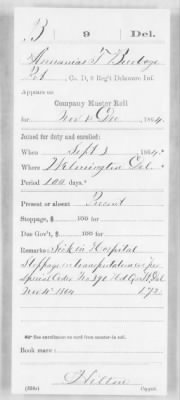 B 9 Del.
T Burbage
Pvt, Co. D, 9 Reg't Delaware Inf.
Appears on
Company Muster Roll
for Nov & Dec, 1864.
Joined for duty and enrolled:
When Sept 2, 1864.*
Where Wilmington Del.
Period 100 days.*
Present or absent Present
Stoppage, $ 100 for
Due Gov't, $ 100 for
Remarks: Sick in Hospital
Stoppage for transportation
Special Order No 390
Nov 4th 1864 1.72
*See enrollment on card from muster-in roll.
Book mark:
(358c) Copyist.